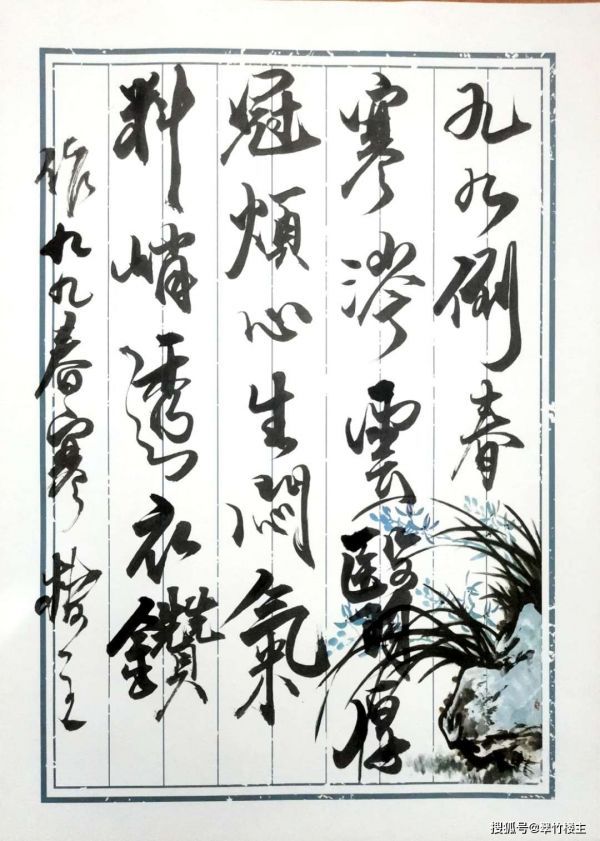 九九倒春
寒涔雲翳厚
冠煩心生悶氣
料峭透衣鑽
作九九春寒 楼主
搜狐号@翠竹楼主